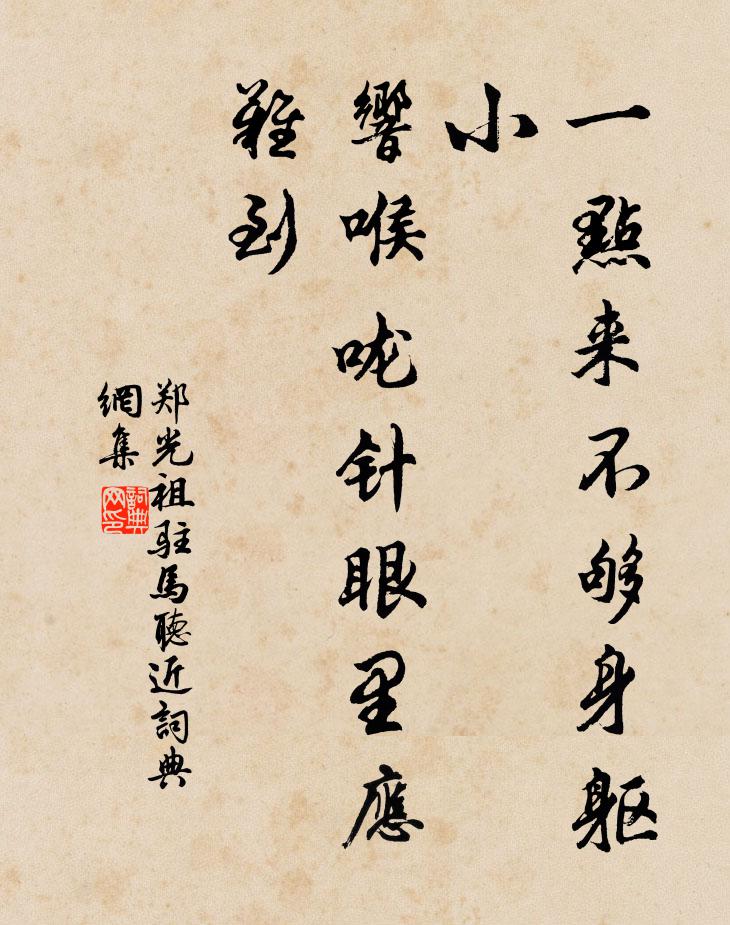 一點来不够身躯
小
響喉咙针眼里應
難到
郑光祖驻馬聽近詞典
網集
詞典
网印